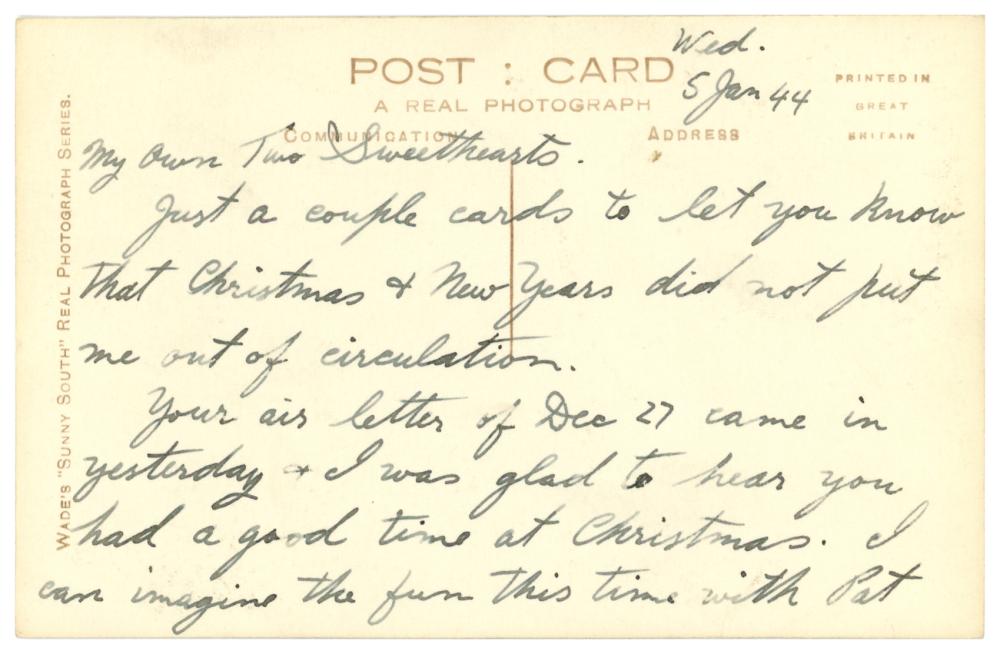 Wed.
5 Jan 44
POST : CARD
A REAL PHOTOGRAPH
PRINTED IN
GREAT
BRITAIN
COMMUNICATION
ADDRESS
WADE'S "SUNNY SOUTH" REAL PHOTOGRAPH SERIES.
My Own Two Sweethearts.
Just a couple cards to let you know
that Christmas & New Years did not put
me out of circulation.
Your air letter of Dec 27 came in
yesterday & I was glad to hear you
had a good time at Christmas. I
can imagine the fun this time with Pat